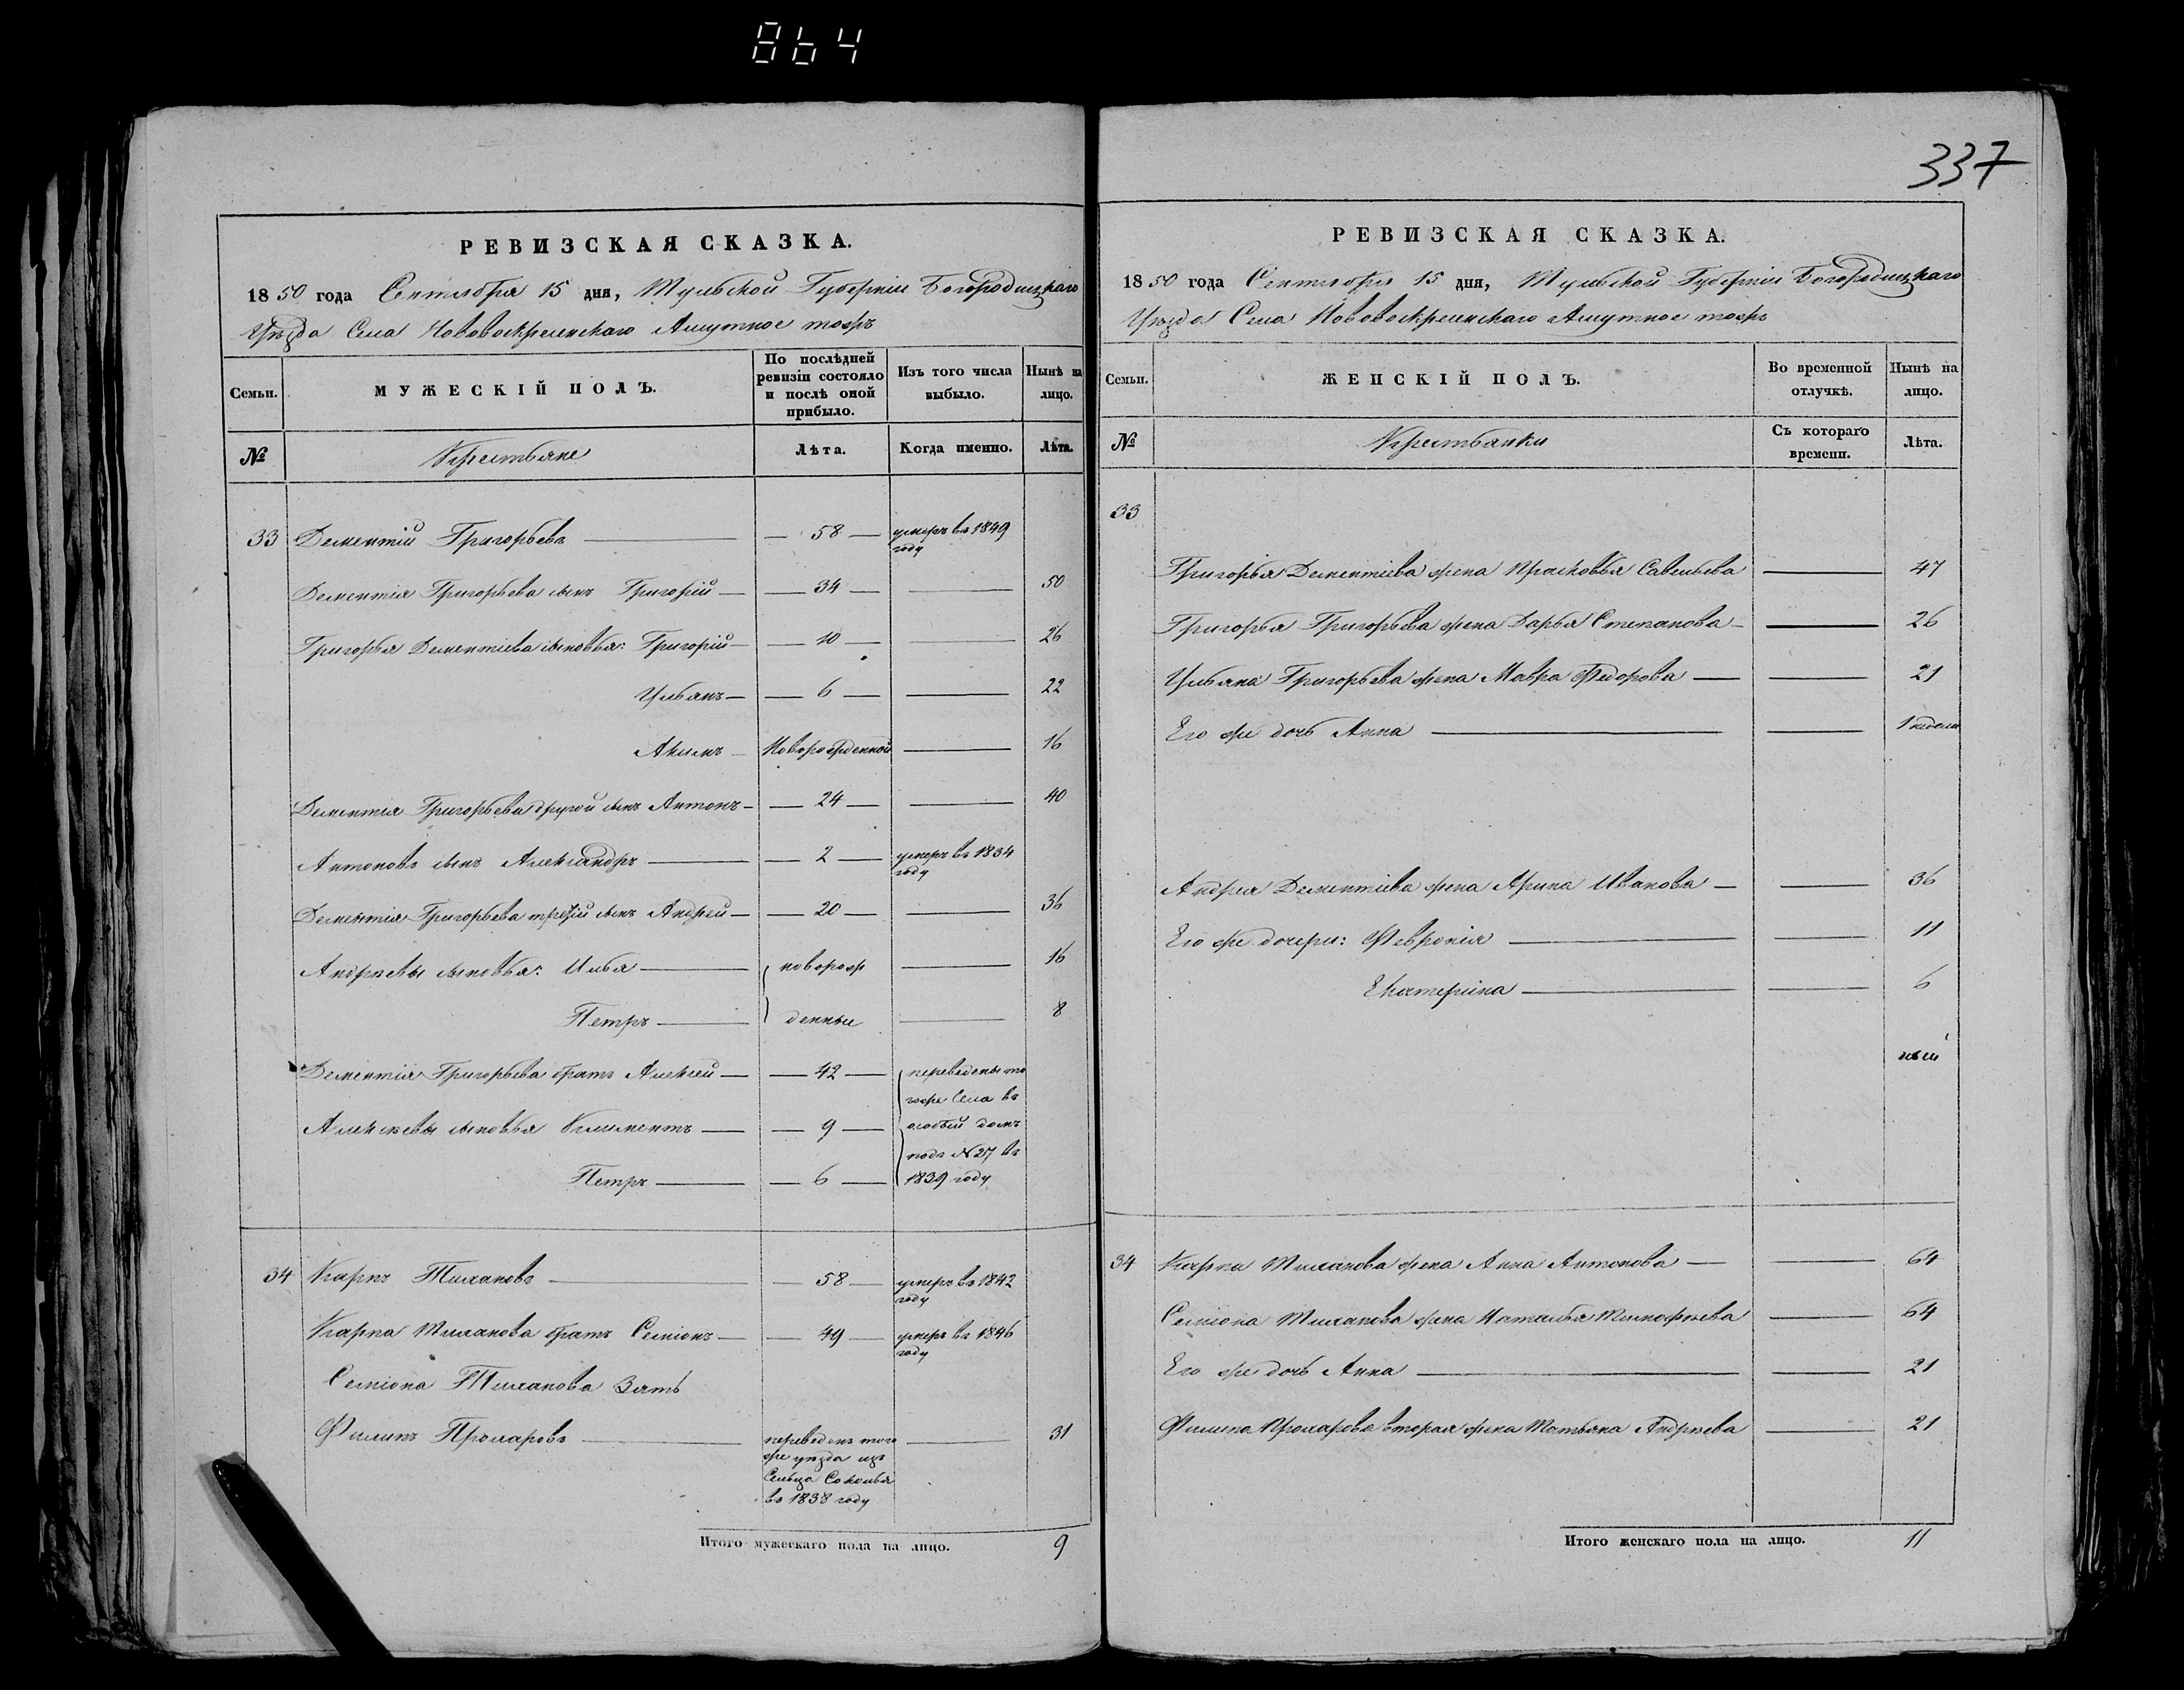 864
337
РЕВИЗСКАЯ СКАЗКА.
1850 года Сентября 15 дня, Тульской Губерніи Богородицкаго
Уѣзда Села Нововоскресенскаго тожъ
Семьи.
МУЖЕСКІЙ ПОЛЪ.
По послѣдней ревизіи состояло и послѣ оной прибыло.
Изъ того числа выбыло.
Нынѣ на лицо.
№
Крестьяне
Лѣта.
Когда именно.
Лѣта.
33 Дементій Григорьевъ — 58 — умеръ въ 1849 году
Дементія Григорьева сынъ Григорій — 34 — 50
Григорья Дементіева сыновья: Григорій — 10 — 26
Ульянъ — 6 — 22
Акимъ — Новорожденной — 16
Дементія Григорьева другой сынъ Антонъ — 24 — 40
Антоновъ сынъ Александръ — 2 — умеръ въ 1834 году
Дементія Григорьева третій сынъ Андрей — 20 — 36
Андреевы сыновья: Илья — новорож — 16
Петръ — денные — 8
Дементія Григорьева братъ Алексей — 42 — переведены то
гоже Села въ
Алексеевы сыновья Климентъ — 9 — особый домъ
подъ №27 въ
Петръ — 6 — 1839 году
34 Карпъ Тихановъ — 58 — умеръ въ 1842 году
Карпа Тиханова братъ Семіонъ — 49 — умеръ въ 1846 году
Семіона Тиханова Зять
Филипъ Прохаровъ — переведенъ того — 31
же уѣзда изъ
Сельца Соколья
въ 1838 году
Итого мужескаго пола на лицо. 9
РЕВИЗСКАЯ СКАЗКА.
1850 года Сентября 15 дня, Тульской Губерніи Богородицкаго
Уѣзда Села Нововоскресенскаго тожъ
Семьи.
ЖЕНСКІЙ ПОЛЪ.
Во временной отлучкѣ.
Нынѣ на лицо.
№
Крестьянки
Съ котораго времени.
Лѣта.
33
Григорья Дементіева жена Прасковья Савельева — 47
Григорья Григорьева жена Дарья Степанова — 26
Ульяна Григорьева жена Мавра Федорова — 21
Его же дочь Анна — 1 недели
Андрея Дементіева жена Арина Иванова — 36
Его же дочери: Февронія — 11
Екатерина — 6
34 Карпа Тиханова жена Анна Антонова — 64
Семіона Тиханова жена Наталья Тимофеева — 64
Его же дочь Анна — 21
Филипа Прохарова вторая жена Татьяна Андреева — 21
Итого женскаго пола на лицо. 11